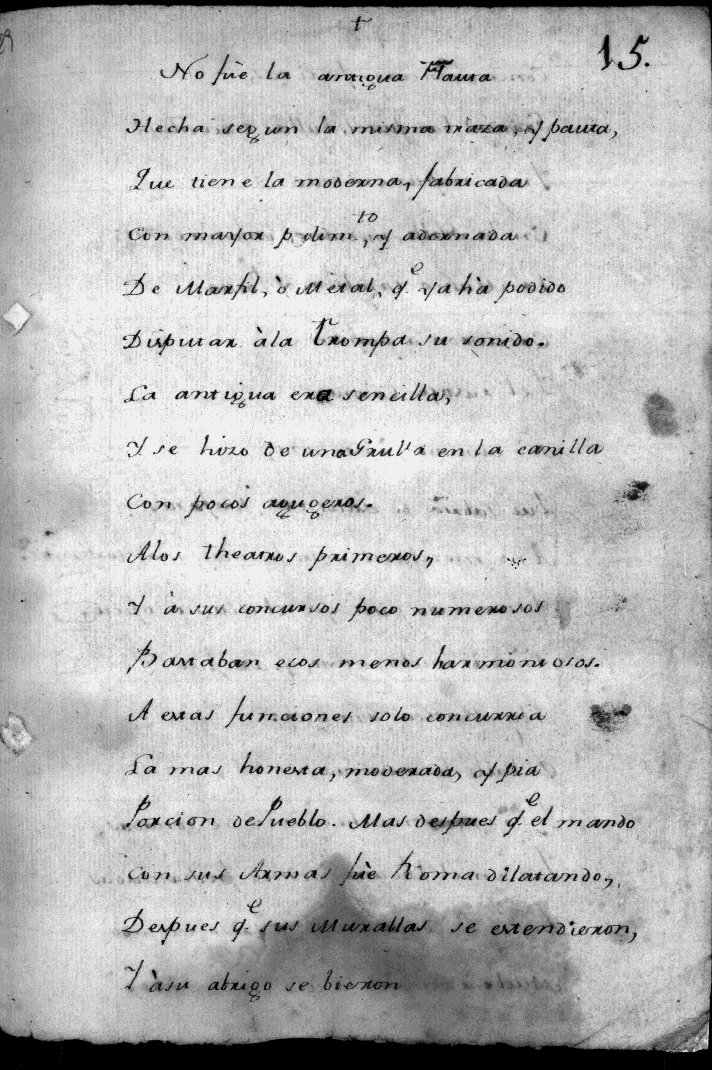 15.
No fuè la antigua Flauta
Hecha segun la misma traza, y pauta,
Que tiene la moderna, fabricada
Con mayor pulim.to, y adornada
De Marfil, ò Metal, q.e ya hà podido
Disputar àla Trompa su sonido.
La antigua era sencilla,
Y se hizo de una Grulla en la canilla
Con pocos agugeros.
Alos theatros primeros,
Y à sus concursos poco numerosos
Bastaban ecos menos harmoniosos.
A estas funciones solo concurria
La mas honesta, moderada, y pia
Porcion de Pueblo. Mas despues q.e el mando
Con sus Armas fuè Roma dilatando,
Despues q.e sus Murallas se estendieron,
Y àsu abrigo se bieron